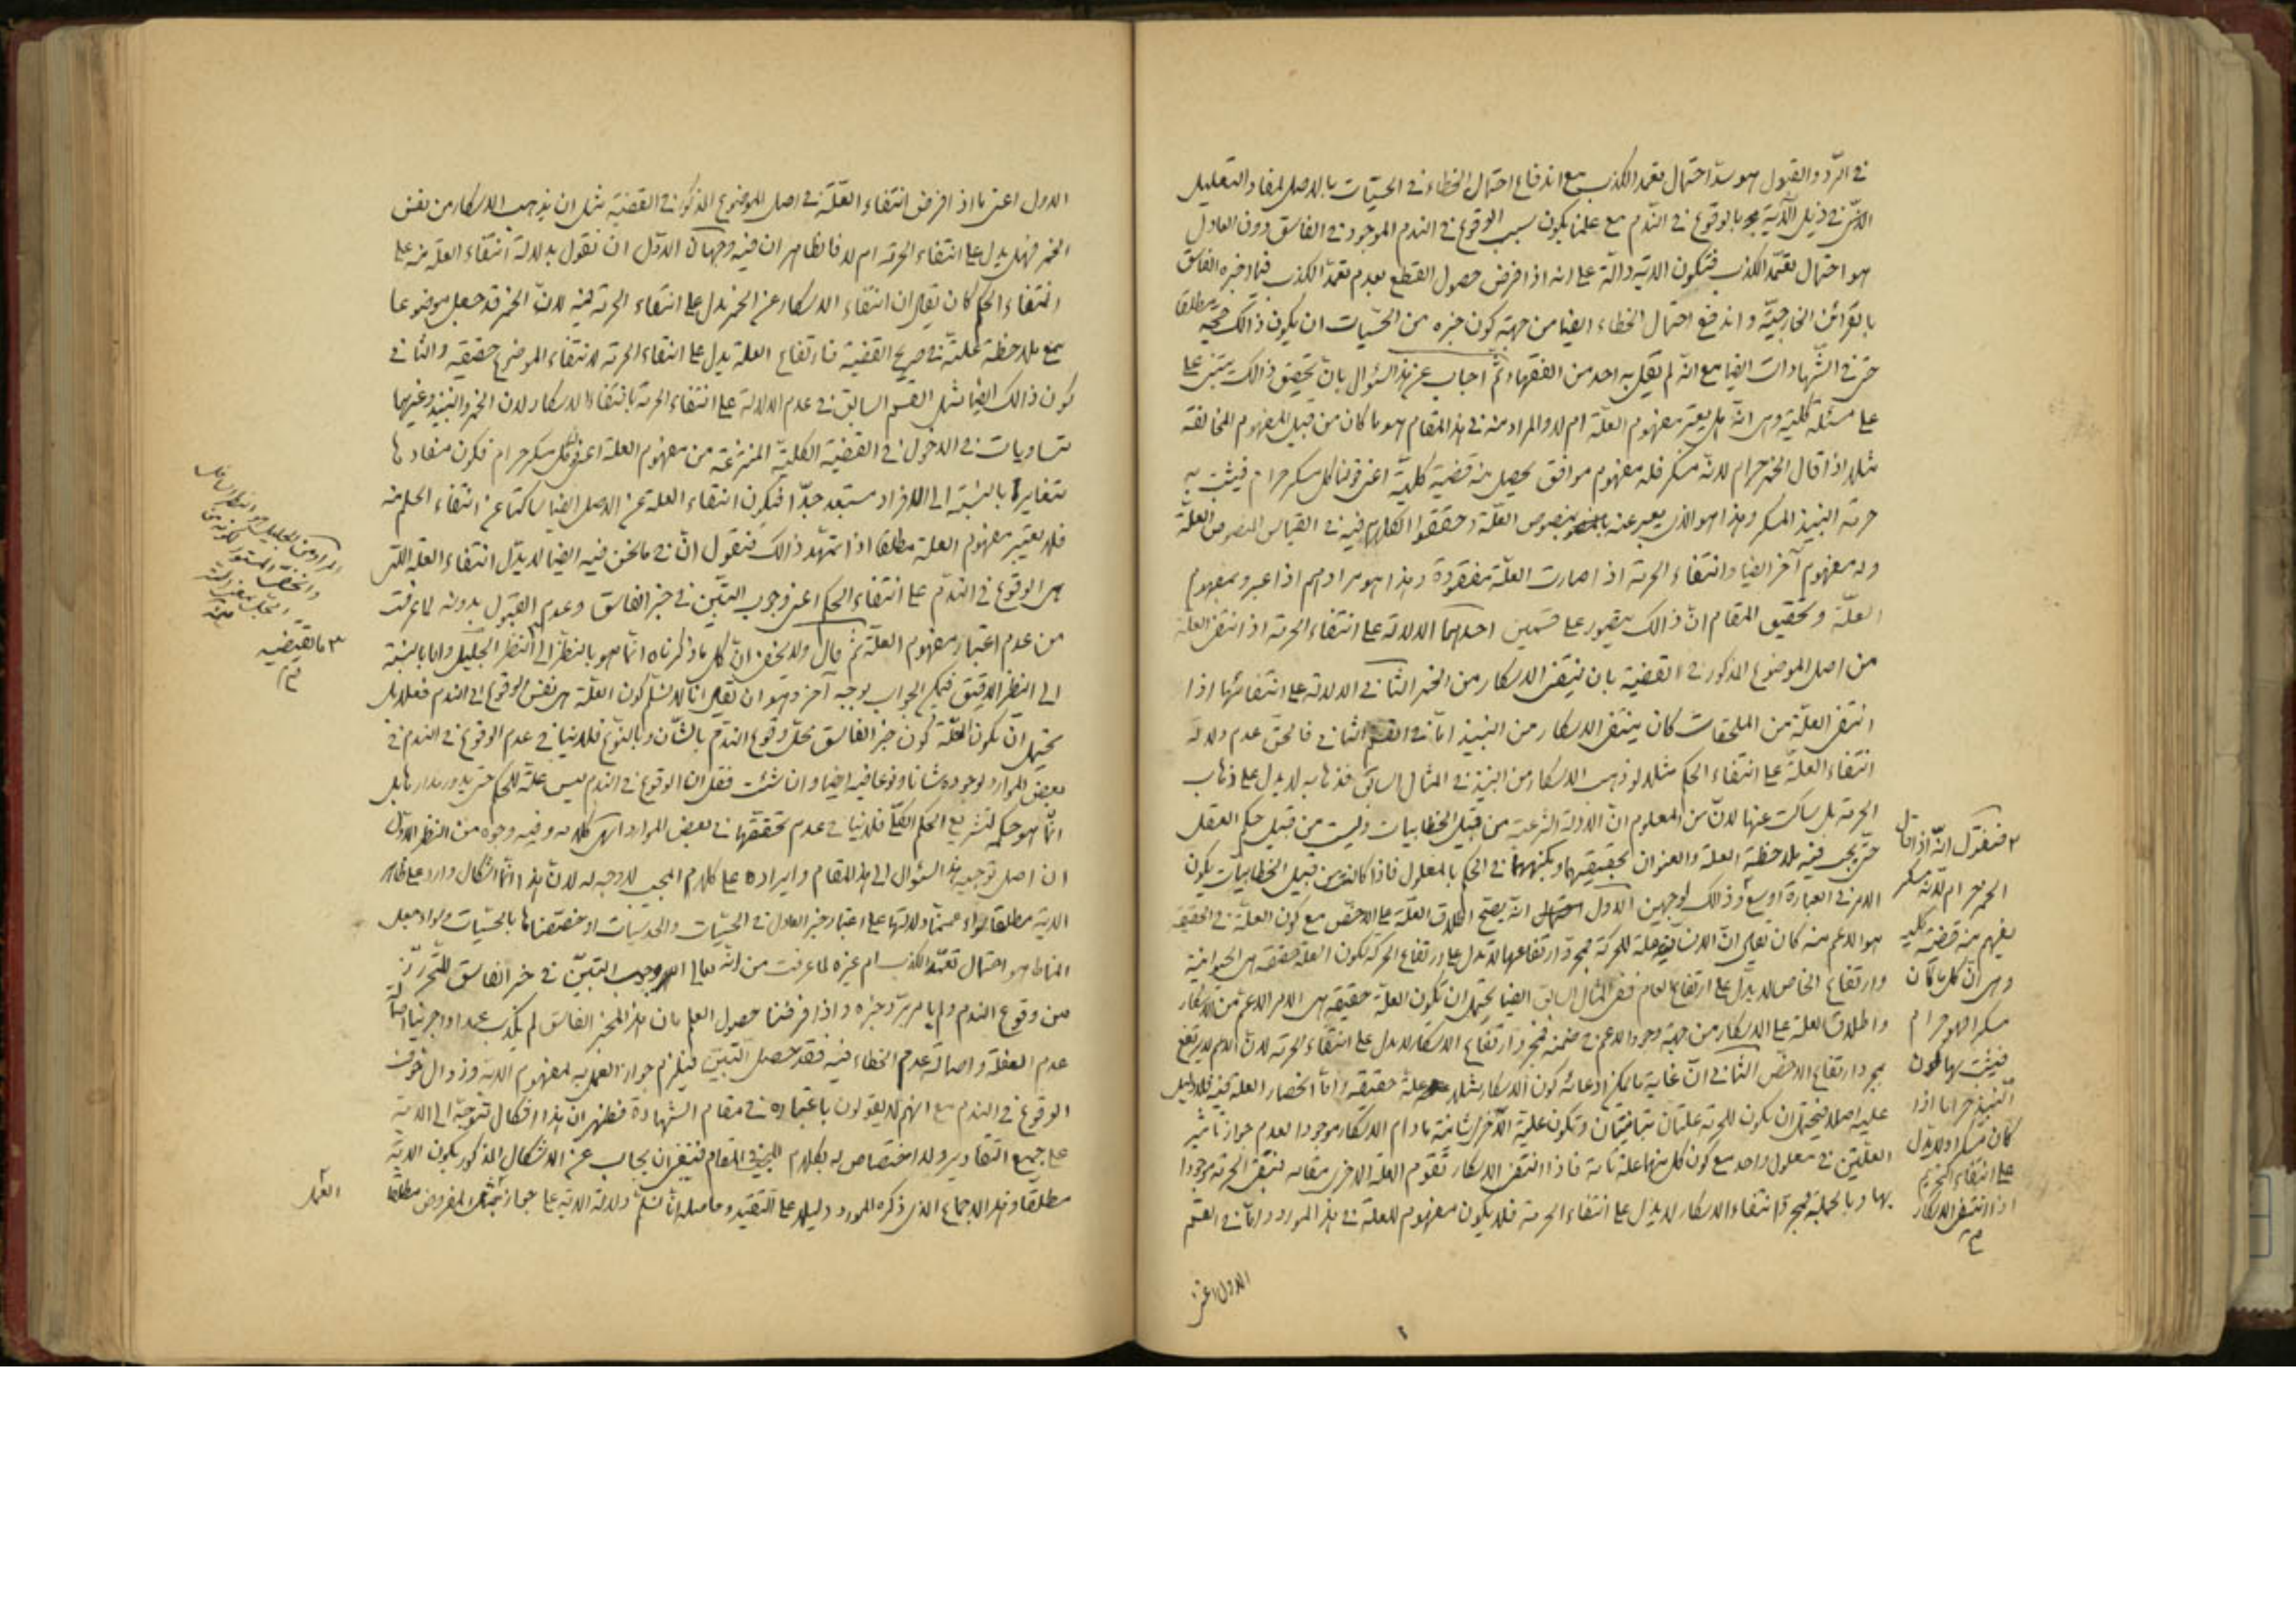 في الردّ والقبول هو سدّ احتمال تعمد الكذب مع اندفاع احتمال الخطاء في الحسّيات بالاصل لمفاد التعليل
الذي في ذيل الآية بالوقوع في الندم مع علمنا بكون سبب الوقوع في الندم الموجود في الفاسق دون العادل
هو احتمال تعمّد الكذب فتكون الاية دالّة على انه اذا فرض حصول القطع بعدم تعمّد الكذب فيما اخبره الفاسق
بالقرائن الخارجيّة واندفع احتمال الخطاء ايضا من جهة كون خبره من الحسّيات ان يكون ذلك حجّة مطلقا
حتى في الشهادات ايضا مع انّه لم يقل به احد من الفقهاء ثمّ اجاب عن هذا السؤال بانّ تحقيق ذالك يبتنى على
على مسئلة كلية وهى انّه هل يعتبر مفهوم العلّة ام لا والمراد منه في هذا المقام هو ما كان من قبيل المفهوم المخالفة
مثلا اذا قال الخمر حرام لانّه مسكر فله مفهوم موافق يحصل منه قضية كلية اعنى قولنا كل مسكر حرام فيثبت به
حرمة النبيذ المسكر وهذا هو الذى يعبر عنه بمنصوص العلّة وحققوا الكلام فيه في القياس المنصوص العلّة
وله مفهوم آخر ايضا وانتفاء الحرمة اذا صارت العلّة مفقودة وهذا هو مرادهم اذا عبروا بمفهوم
العلّة وتحقيق المقام انّ ذالك يتصور على قسمين احدهما الدلالة على انتفاء الحرمة اذا انتفى العلة
من اصل الموضوع المذكور في القضية بان ينتفى الاسكار من الخمر الثاني الدلالة على انتفائها اذا
انتفى العلّة من الملحقات كان ينتفى الاسكار من النبيذ امّا في القسم الثاني فالحقّ عدم دلالة
انتفاء العلّة على انتفاء الحكم مثلا لو ذهب الاسكار من النبيذ في المثال السابق فذهابه لا يدل على ذهاب
الحرمة بل ساكت عنها لانّ من المعلوم انّ الادلة الشرعية من قبيل الخطابيات وليست من قبيل حكم العقل
حتّى يجب فيه ملاحظة العلة والعنوان بحقيقتهما وبكنههما في الحكم بالمعلول فاذا كانت من قبيل الخطابيات يكون
الامر في العبارة اوسع وذالك لوجهين الاول انّه يصحّ اطلاق العلّة على الاخصّ مع كون العلّة في الحقيقة
هو الاعم منه كان يقال انّ الانسانية علة للحركة فمجرّد ارتفاعها لا تدل على ارتفاع الحركة لكون العلة حقيقة هى الحيوانية
وارتفاع الخاص لا يدلّ على ارتفاع العام ففى المثال السابق ايضا يحتمل ان تكون العلّة حقيقة هى الامر الاعم من الاسكار
واطلاق العلة على الاسكار من جهة وجود الاعم في ضمنه فمجرد ارتفاع الاسكار لا يدل على انتفاء الحرمة لانّ الاعم لا يرتفع
بمجرد ارتفاع الاخصّ الثاني انّ غاية ما يمكن ادعائه كون الاسكار مثلا علة حقيقة وامّا انحصار العلة فيه فلا دليل
عليه اصلا فيحتمل ان يكون للحرمة علتان تامّتان وتكون علية الآخرى شانية مادام الاسكار موجودا لعدم جواز تاثير
العلّتين في معلول واحد مع كون كل منهما علة تامة فاذا انتفى الاسكار تقوم العلة الاخرى مقامه فتبقى الحرمة موجودا
بها وبالجملة فمجرّد انتفاء الاسكار لا يدل على انتفاء الحرمة فلا يكون مفهوم للعلة في هذا المورد وامّا في القسم
الاول اعنى
فنقول انّه اذا قال
الخمر حرام لانّه مسكر
يفهم منه قضية كلية
وهى انّ كل ما كان
مسكرا فهو حرام
فيثبت بها كون
النبيذ حراما اذا
كان مسكرا ولا يدلّ
على انتفاء التحريم
اذا انتفى الاسكار
الاول اعنى ما اذا فرض انتفاء العلّة في اصل الموضوع المذكور في القضية مثل ان يذهب الاسكار من نفس
الخمر فهل يدل على انتفاء الحرمة ام لا فالظاهر ان فيه وجهان الاول ان نقول بدلالة انتفاء العلة منه على
انتفاء الحكم كان يقال ان انتفاء الاسكار عن الخمر يدل على انتفاء الحرمة فيه لانّ الخمر قد جعل موضوعا
مع ملاحظة علّية في صريح القضية فارتفاع العلة يدل على انتفاء الحرمة لانتفاء الموضوع حقيقة والثاني
كون ذالك ايضا مثل القسم السابق في عدم الدلالة على انتفاء الحرمة بانتفاء الاسكار لان الخمر والنبيذ وغيرهما
متساويات في الدخول في القضية الكلية المنتزعة من مفهوم العلة اعنى كل مسكر حرام فكون مفادها
متغايرا بالنسبة الى الافراد مستبعد جدّا فيكون انتفاء العلة عن الاصل ايضا ساكتا عن انتفاء الحكم منه
فلا يعتبر مفهوم العلة مطلقا اذا تمهّد ذالك فنقول انّ في ما نحن فيه ايضا لا يدّل انتفاء العلة التى
هى الوقوع في الندم على انتفاء الحكم اعنى وجوب التبيّن في خبر الفاسق وعدم القبول بدونه لما عرفت
من عدم اعتبار مفهوم العلّة ثمّ قال ولا يخفى انّ كل ما ذكرناه انّما هو بالنظر الى النظر الجليل وامّا بالنسبة
الى النظر الدقيق فيمكن الجواب بوجه آخر وهو ان يقال انّا لا نسلّم كون العلّة هى نفس الوقوع في الندم فعلا بل
يحتمل ان يكون العلّة كون خبر الفاسق محلّ وقوع الندم بالشأن وبالنوع فلا ينافي عدم الوقوع في الندم في
بعض الموارد لوجوده شانا ونوعا فيه ايضا وان شئت فقل انّ الوقوع في الندم ليس علة للحكم حتى يدور مدارها بل
انّما هو حكمة لتشريع الحكم الكلّى فلا ينافي عدم تحققها في بعض الموارد انتهى كلامه وفيه وجوه من النظر الاوّل
ان اصل توجيه هذا السؤال الى هذا المقام وايراده على كلام المجيب لا وجه له لانّ هذا انّما اشكال وارد على ظاهر
الاية مطلقا سواء عمّمنا دلالتها على اعتبار خبر العادل في الحسّيات والحدسيات او خصّصناها بالحسّيات
المناط هو احتمال تعمّد الكذب ام غيره لما عرفت من انّه تعالى اوجب التبيّن في خبر الفاسق للتحرّز
من وقوع الندم واذا فرضنا حصول العلم بان هذا المخبر الفاسق لم يكذب عمدا واجرينا اصالة
عدم الغفلة واصالة عدم الخطاء فيه فقد حصل التبيّن فيلزم جواز العمل به لمفهوم الاية وزوال خوف
الوقوع في الندم مع انّهم لا يقولون باعتباره في مقام الشهادة فظهر ان هذا اشكال متوجه الى الاية
على جميع التقادير ولا اختصاص له بكلام المجيب في المقام فينبغى ان يجاب عن الاشكال المذكور بكون الاية
مطلقا وهذا الاجماع الذى ذكره المورد دليلا على التقيد وحاصله انّا نسلّم دلالة الاية على جواز المفروض مطلقا
العمل
المراد من الجليل هو
ما يقتضيه